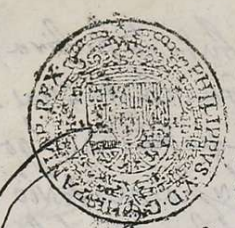 PHILIPPVS·V·D·G·HISPANIAR·REX